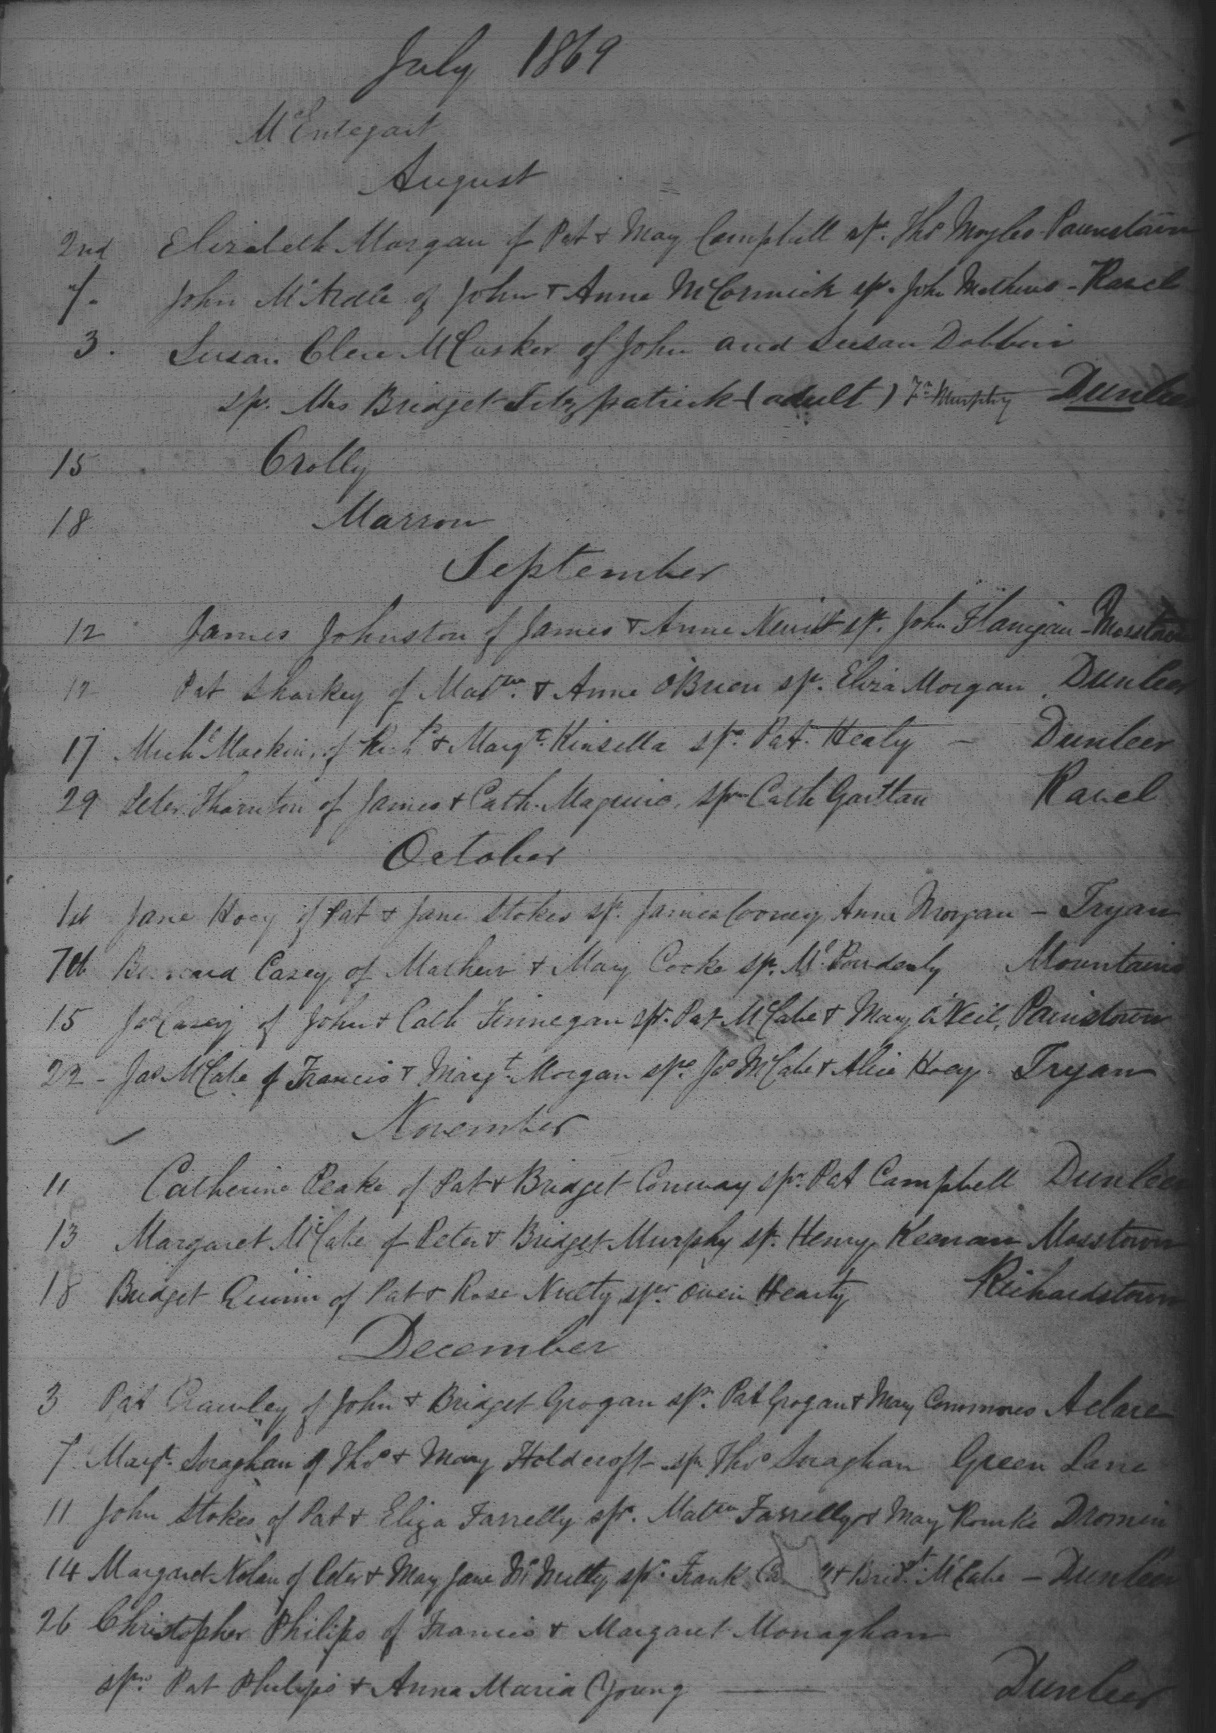 July 1869
McEntegart
August
2nd Elizabeth Morgan of Pat & Mary Campbell sp. Thos Moyles Painstown
7. John McArdle of John & Anne McCormick sp. John Mathews - Ravel
3. Susan Clere McCusker of John and Susan Dobbin
sp. Mrs Bridget Fitzpatrick (adult) Murphy Dunleer
15 Crolly
18 Marron
September
12 James Johnston of James & Anne sp. John Flanigan - Mosstown
12 Pat Sharkey of & Anne O'Brien sp. Eliza Morgan. Dunleer
17 Michl Mackin of & Margt. Kinsella spr. Pat Healy - Dunleer
29 Peter Thornton of James & Cath. Maguire, spr Cath Gartlan Ravel
October
1st Jane Hoey of Pat & Jane Stokes sp. James Cooney Anne Morgan - Tryan
7th Bernard Casey of Mathew & Mary Cooke sp. Mountains
15 Jas Casey of John & Cath Finnegan spr. Pat McCabe & Mary O'Neil, Painstown
22 - Jas McCabe of Francis & Margt. Morgan sprs Jas McCabe & Alice Hoey. Tryan
November
11 Catherine Peake of Pat & Bridget Conway spr. Pat Campbell Dunleer
13 Margaret McCabe of Peter & Bridget Murphy sp. Henry Keenan Mosstown
18 Bridget Quinn of Pat & Rose Nulty spr. Owen Hearty Richardstown
December
3 Pat Crawley of John & Bridget Grogan spr. Pat Grogan & Mary Commons Aclare
7 Margt. Soraghan of Thos & Mary Holdcroft spr Thos Soraghan Green Lane
11 John Stokes of Pat & Eliza Farrelly spr. Farrelly & Mary Rourke Dromin
14 Margaret Nolan of Peter & Mary Jane McNulty spr. Frank & Bridt. McCabe - Dunleer
26 Christopher Philips of Francis & Margaret Monaghan
sprs. Pat Philips & Anna Maria Young Dunleer